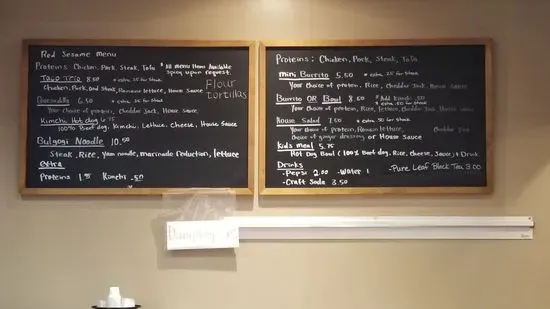 Red Sesame Menu
Proteins: Chicken, Pork, Steak, Tofu
* All menu items Available spicy upon request.
Taco Trio 8.50 * extra .75 for Steak
Chicken, Pork, and Steak, Romaine lettuce, House Sauce
Flour tortillas
Quesadilla 6.50 * extra .25 for Steak
Your choice of protein, Cheddar Jack, House Sauce
Kimchi Hot dog 6.75
100% Beef dog, Kimchi, Lettuce, Cheese, House Sauce
Bulgogi Noodle 10.50
Steak, Rice, yam noodle, marinade reduction, lettuce
extra
Proteins Kimchi .50
Proteins: Chicken, Pork, Steak, Tofu
mini Burrito 5.50 * extra .25 for Steak
Your choice of protein, Rice, Cheddar Jack, House Sauce
Burrito OR Bowl 8.50 * Add Kimchi .50
* extra .50 for Steak
Your choice of protein, Rice, lettuce, Cheddar Jack, House Sauce
House Salad 7.50 * extra .50 for Steak
Your choice of protein, Romain lettuce, Cheddar Jack
Choice of ginger dressing or House Sauce
Kids meal 5.75
Hot Dog Bowl (100% Beef dog, Rice, Cheese, Sauce) + Drink
Drinks
-Pepsi 2.00 -Water 1
-Pure Leaf Black Tea 3.00
-Craft Soda 3.50